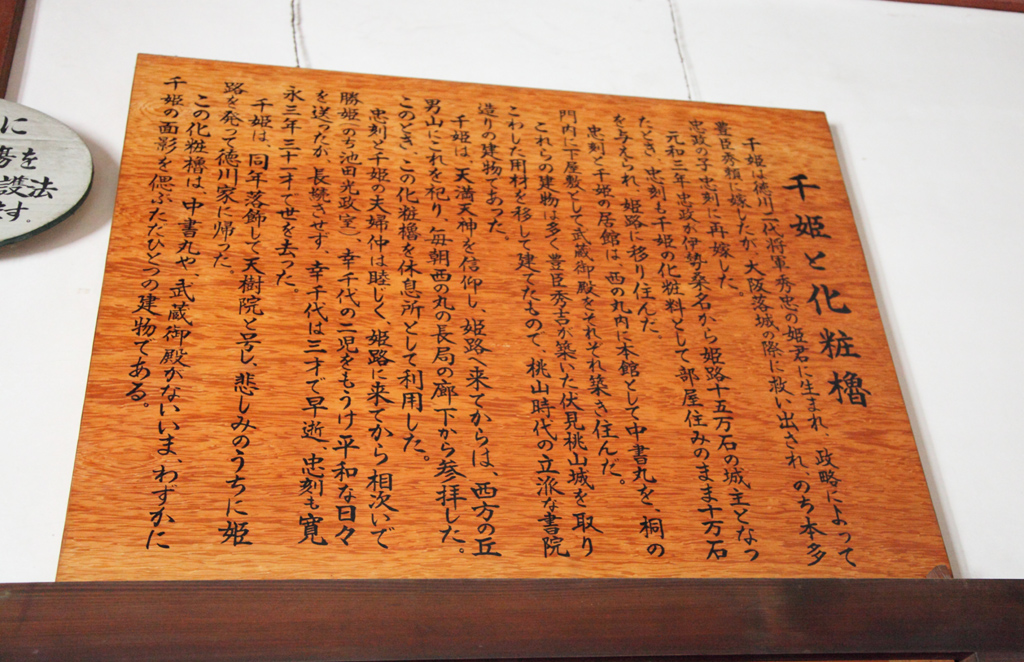 千姫と化粧櫓
千姫は徳川二代将軍秀忠の姫君に生まれ、政略によって
豊臣秀頼に嫁したが、大阪落城の際に救い出され、のち本多
忠政の子忠刻に再嫁した。
元和三年忠政が伊勢桑名から姫路十五万石の城主となっ
たとき、忠刻も千姫の化粧料として部屋住みのまま十万石
を与えられ、姫路に移り住んだ。
忠刻と千姫の居館は、西の丸内に本館として中書丸を、桐の
門内に下屋敷として武蔵御殿をそれぞれ築き住んだ。
これらの建物は多く豊臣秀吉が築いた伏見桃山城を取り
こわした用材を移して建てたもので、桃山時代の立派な書院
造りの建物であった。
千姫は、天満天神を信仰し、姫路へ来てからは、西方の丘
男山にこれを祀り、毎朝西の丸の長局の廊下から参拝した。
このとき、この化粧櫓を休息所として利用した。
忠刻と千姫の夫婦仲は睦じく、姫路に来てから相次いで
勝姫（のち池田光政室）、幸千代の二児をもうけ平和な日々
を送ったが、長続きせず、幸千代は三才で早逝、忠刻も寛
永三年三十一才で世を去った。
千姫は、同年落飾して天樹院と号し、悲しみのうちに姫
路を発って徳川家に帰った。
この化粧櫓は、中書丸や、武蔵御殿がないいま、わずかに
千姫の面影を偲ぶたたひとつの建物である。
に
を
護法
ます.